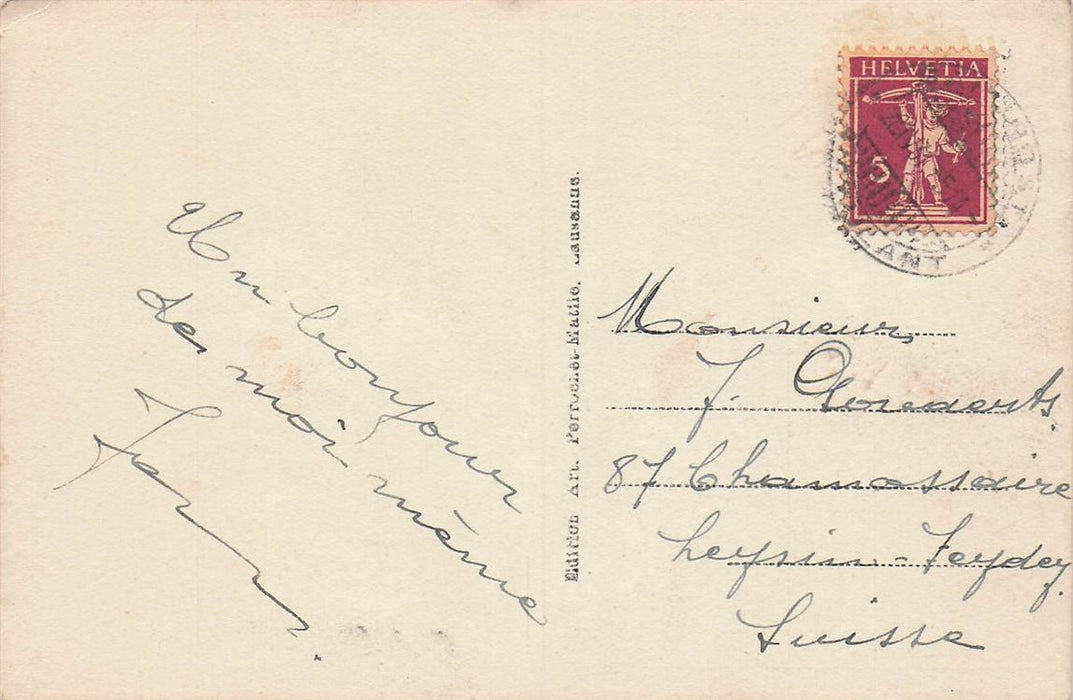 Un bonjour
de moi même
HELVETIA
5
ANT
Edition Art. Perrochet-Matile, Lausanne.
Monsieur
J.
87 Chamossaire
Leysin-Feydey
Suisse